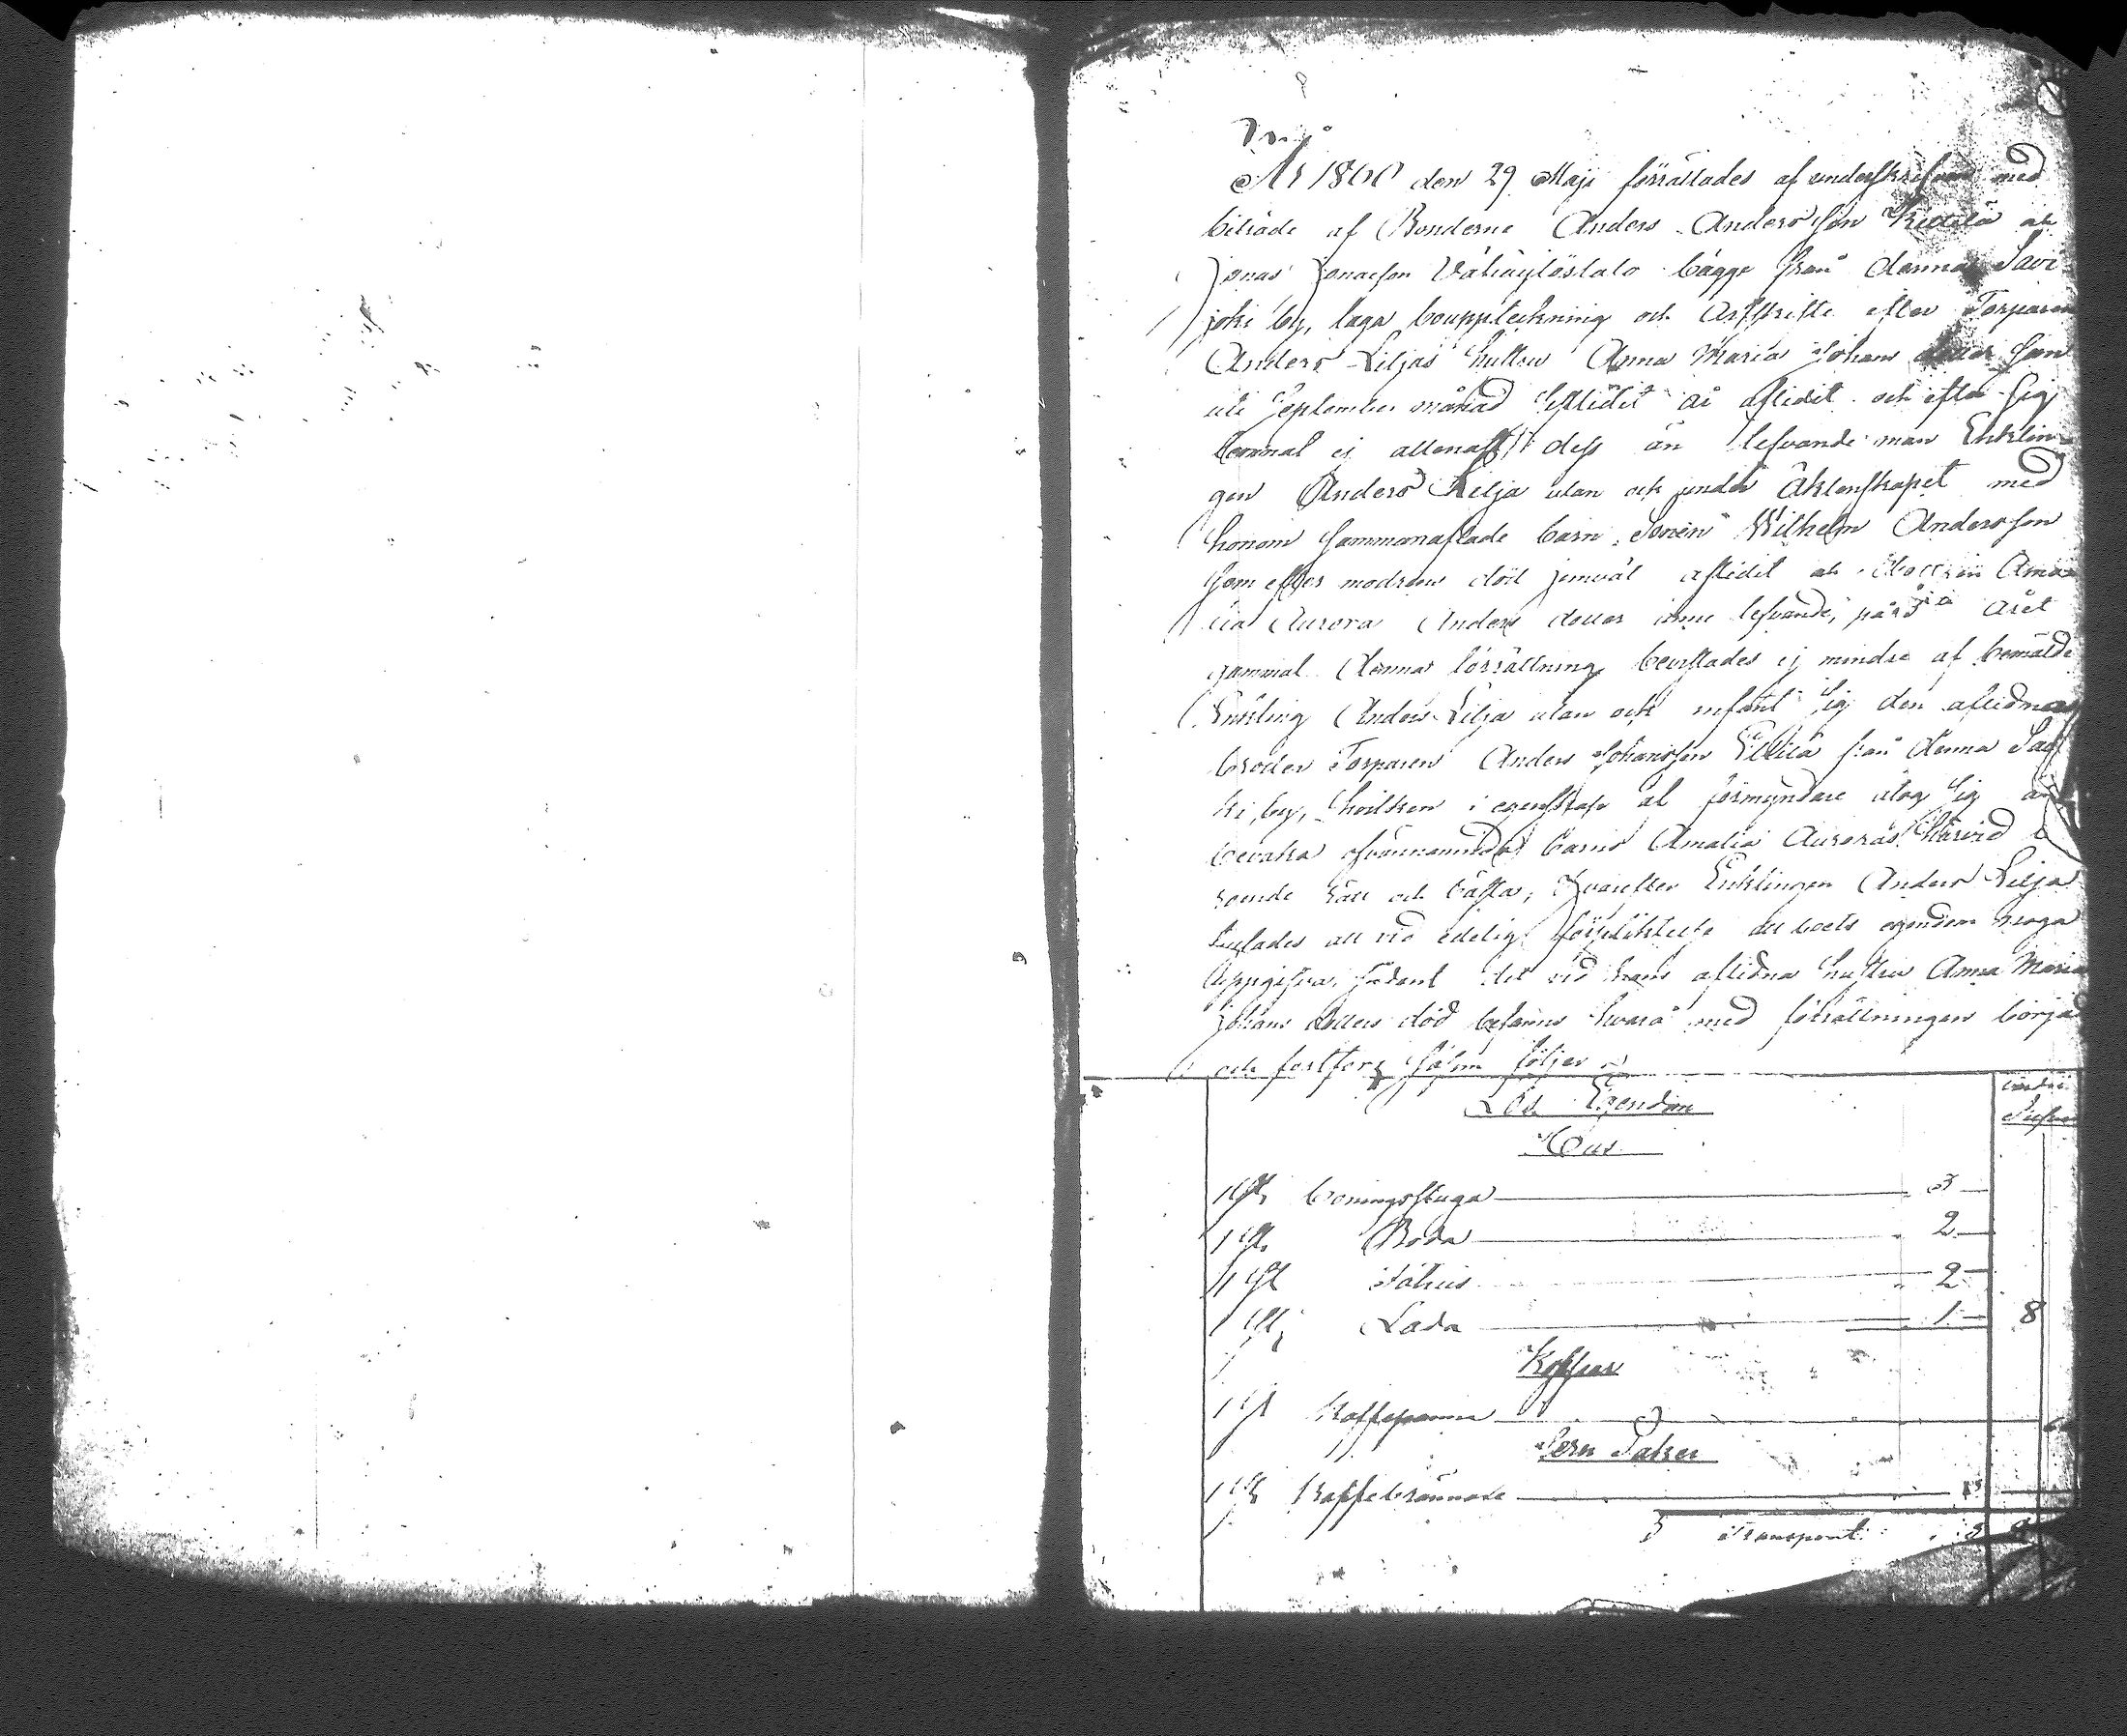 År 1860 den 29 Maji förrättades af underskrifven med
biträde af Bönderne Anders Andersson Kettilä och
Jonas Jonasson Vähäylöstalo bägge från denna Savi-
joki by, laga bouppteckning och Arfskifte efter Torparen
Anders Liljas hustru Anna Maria Johans dotter som
uti September månad sistlidit år aflidit och efter sig
lemnat ej allenast dess än lefvande man Enklin-
gen Anders Lilja utan ock under äktenskapet med
honom sammanaflade barn Sonen Wilhelm Andersson
som efter modrens död jemväl aflidit och dottren Ama-
lia Aurora Anders dotter ännu lefvande, på året
gammal. Denna förrättning bevistades ej mindre af bemälde
Enkling Anders Lilja utan ock infant sig den aflidnas
broder Torparen Anders Johansson från denna Savi-
ki by, hvilken i egenskap af förmyndare åtog sig att
bevaka ofvannämnda barns Amalia Auroras härvid
rätt och bästa; Hvarefter Enklingen Anders Lilja
att vid edelig förpliktelse all boets egendom noga
uppgifva, sådant det vid hans aflidna hustru Anna Maria
Johans dotters död befanns hvarå med förrättningen börjad
och fortfors såsom följer
Lös Egendom
Silfver
Hus
1 st boningsstuga 3
1 st Boda 2
1 st Fähus 2
1 st Lada 1 8
Koppar
1 st Kaffepanna
Jern Saker
1 st Kaffebrännare
Transport